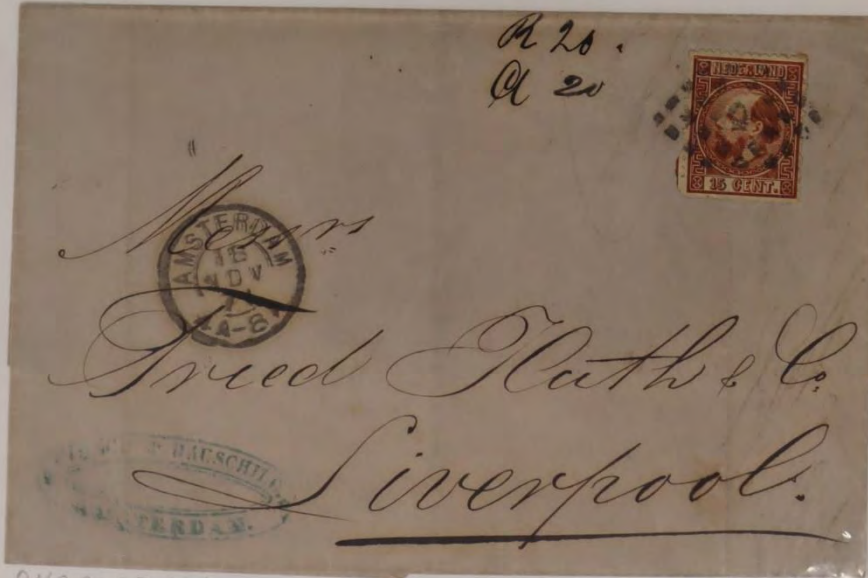 R 20.
A 20
NEDERLAND
15 CENT.
Messrs
AMSTERDAM
NOV
4A-8
Fried Huth & Co.
Liverpool.
AMSTERDAM.